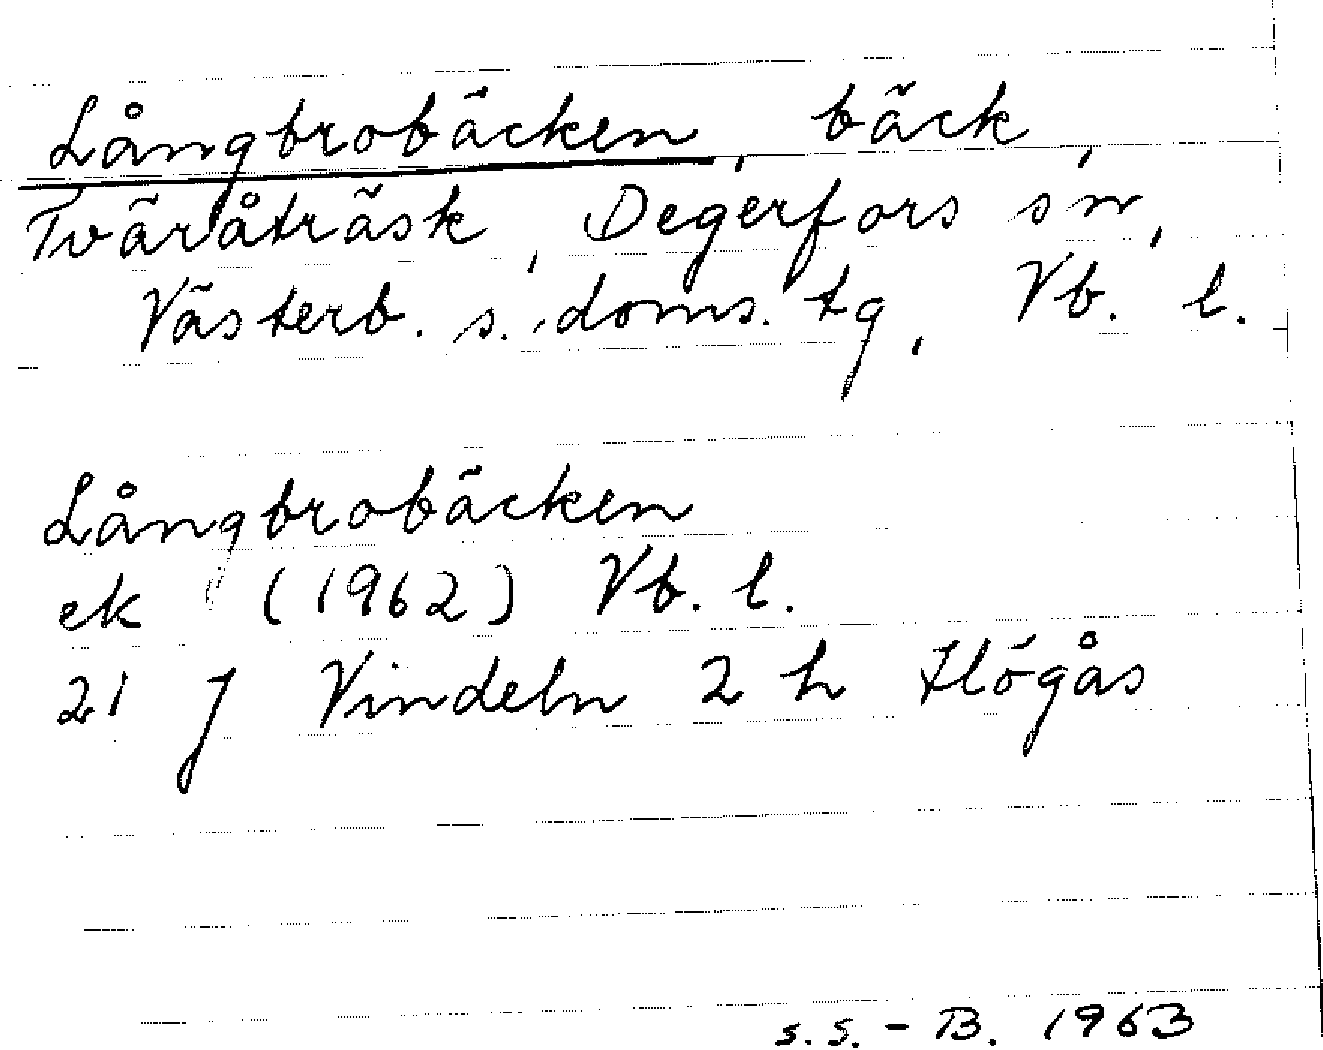 Långbrobäcken, bäck,
Tväråträsk, Degerfors sn,
Västerb. s. doms. tg, Vb. l.
Långbrobäcken
ek (1962) Vb. l.
21 J Vindeln 2 h Högås
S.S. - B. 1963